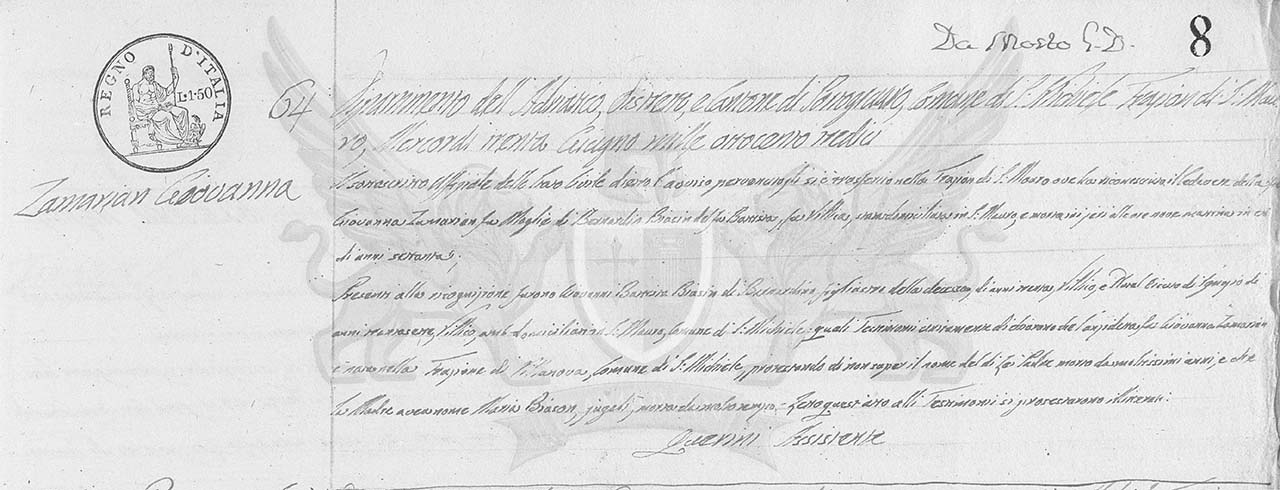 Da Mosto G. B.
8
REGNO D'ITALIA
L.1.50
64
Dipartimento dell'Adriatico, Distreto, e Cantone di Portogruaro, Comune di S. Michiele Frazion di S. Mau
ro, Mercordì trenta Giugno mille ottocento tredici
Zamarian Giovanna
Il sottoscritto Uffiziale dello Stato Civile dietro l'aquio si è trasferito nella Frazion di S. Mauro ove ha riconosciuto il Cadavere della
Giovanna Zamarian fu Moglie di Bernardin Biasin del fu Battista, fu Villica, domiciliata in S. Mauro, e morta jeri alle ore nove mattina in età
di anni settanta;
Presenti alla ricognizione furono Giovanni Battista Biasin di Bernardino, figliastro della decessa, di anni trenta, Villico, e di
anni trentasette, Villico, amb domiciliati in S. Mauro, Comune di S. Michiele: quali Testimoni certamente dichiararono che l'anzidetta fu Giovanna Zamarian
è nata nella Frazione di Villanova, Comune di S. Michiele, protestando di non saper il nome del di Lei Padre morto da moltissimi anni, e che
la Madre avea nome Maria Biason, jugali, morta da molto tempo. Letto quest'atto alli Testimoni si protestarono illiterati.
Querini Assistente